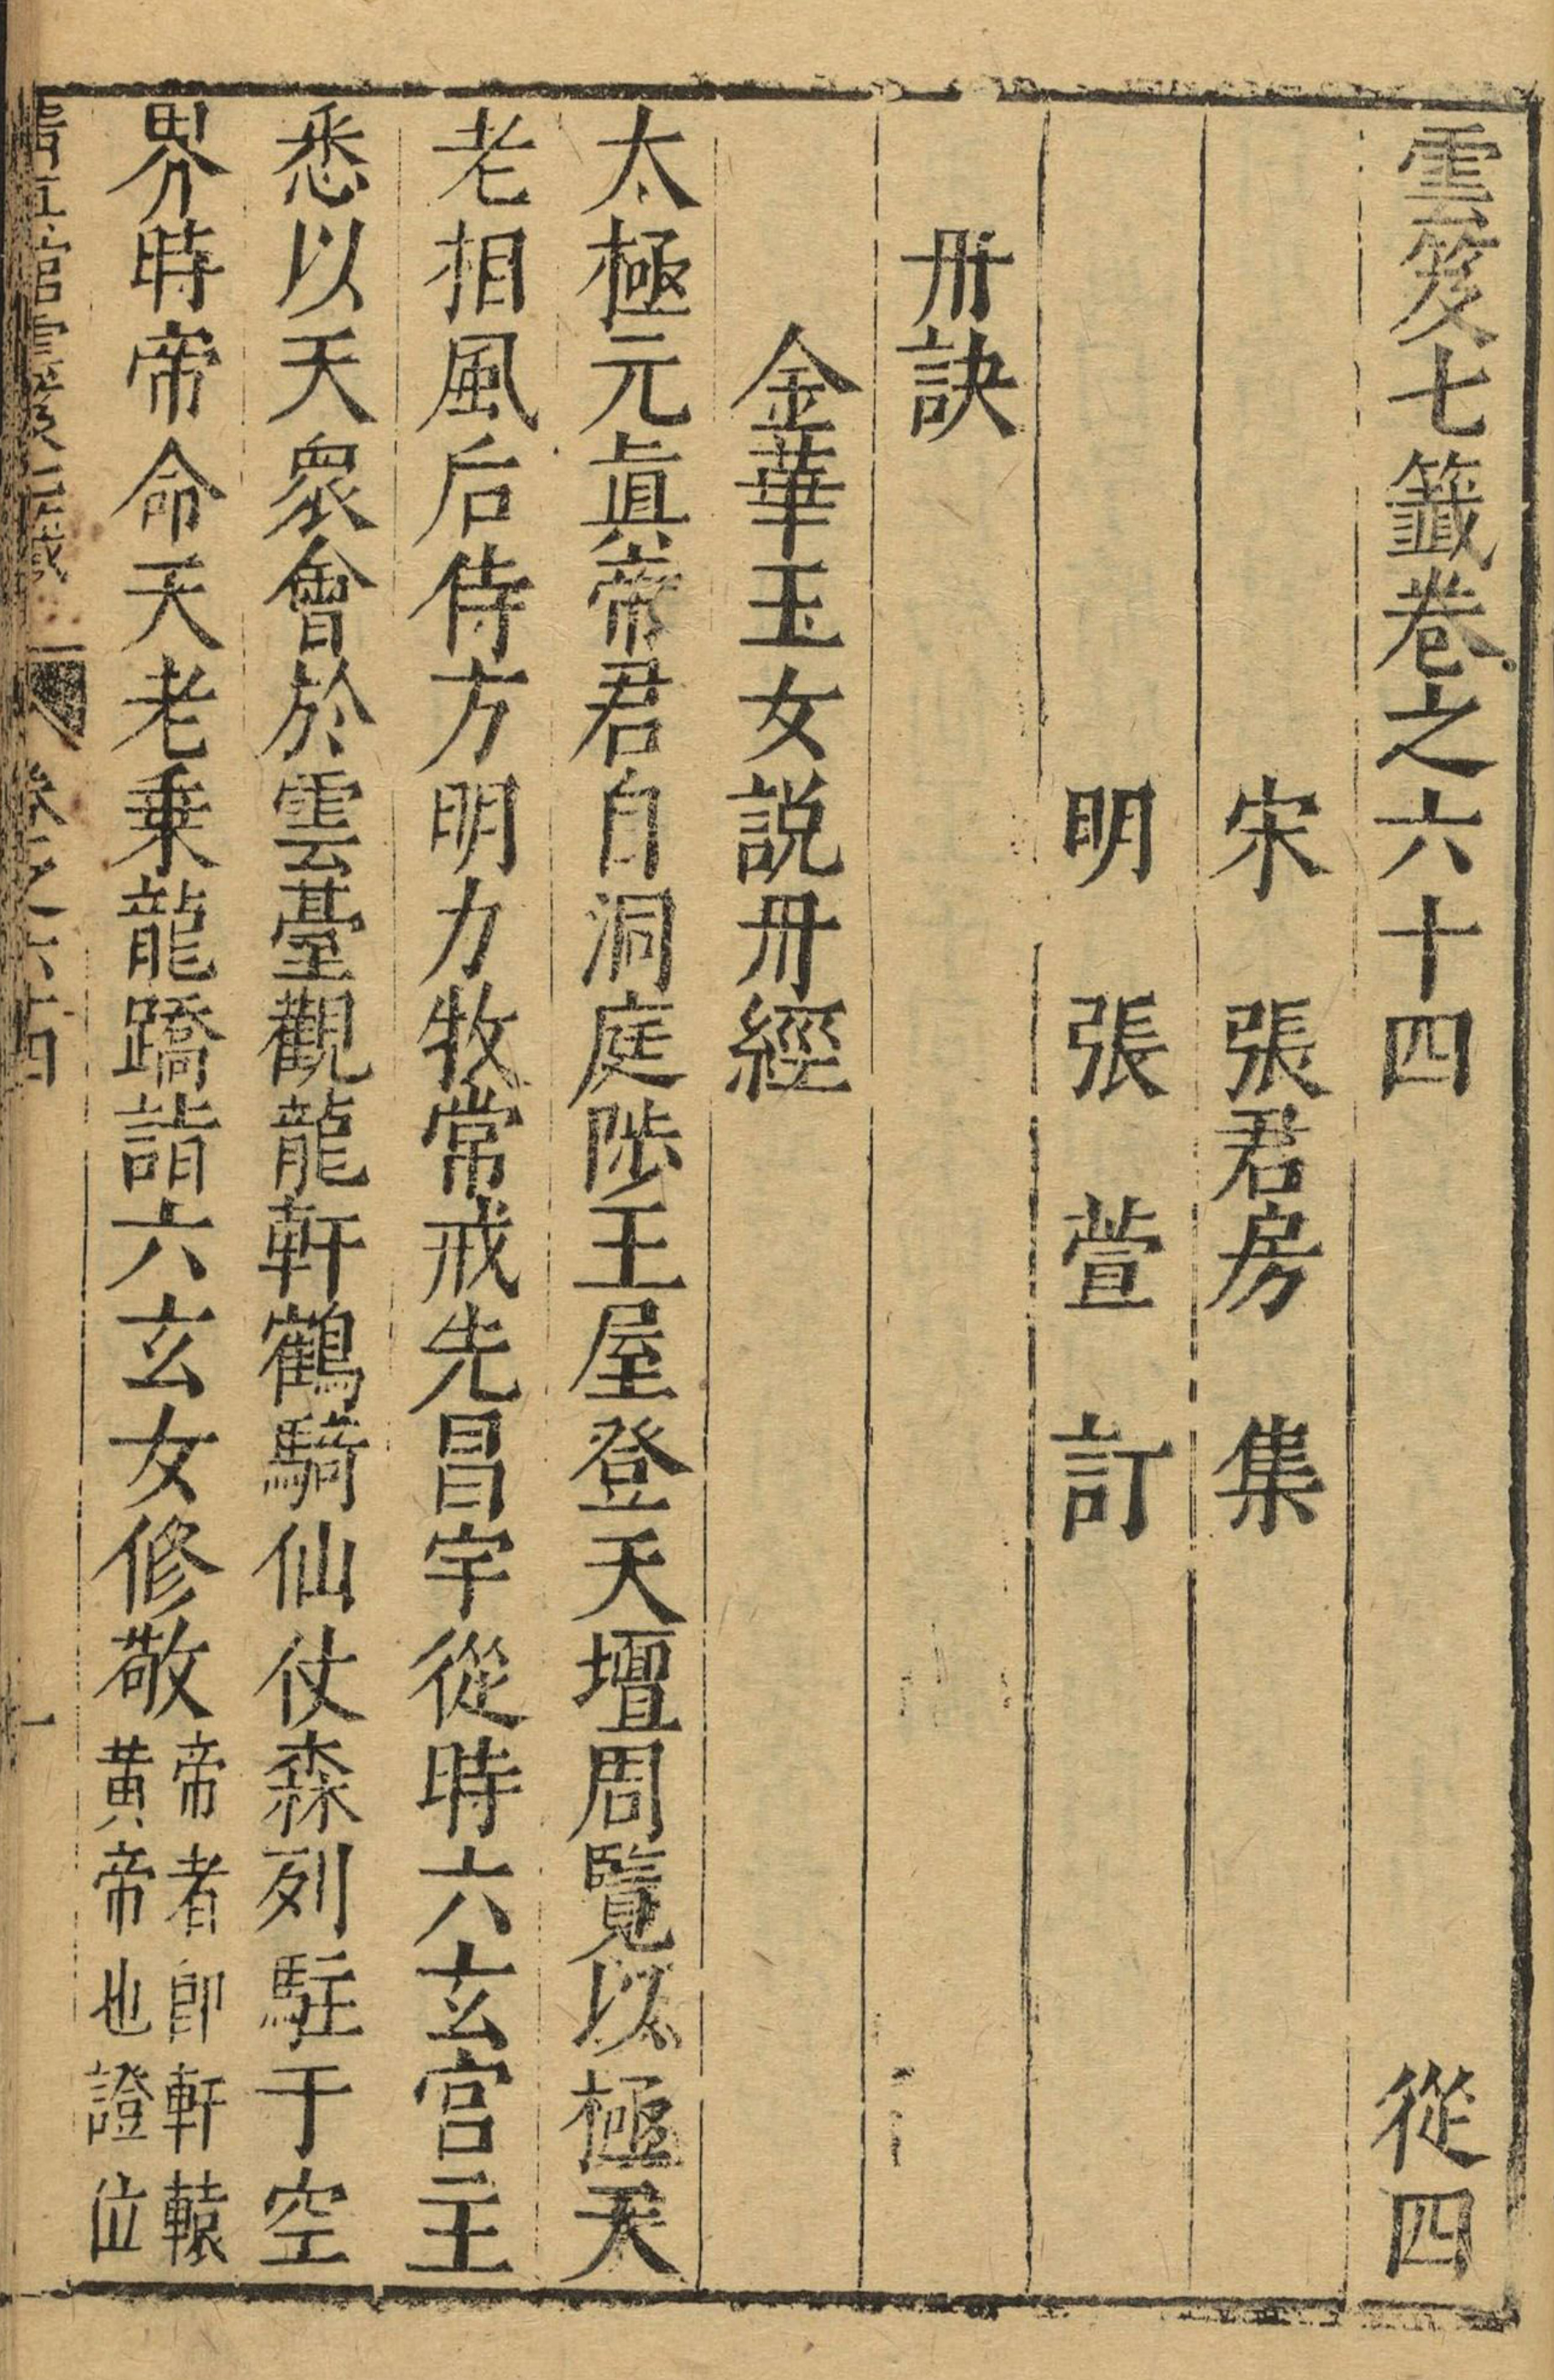 雲笈七籤卷之六十四 從四
宋 張君房 集
明 張萱訂
丹訣
金華玉女説丹經
太極元眞帝君自洞庭陟王屋登天壇周覽以極天
老相風后侍方明力牧常戒先昌宇從時六玄宮主
悉以天衆會於雲臺觀龍軒鶴騎仙仗森列駐于空
界時帝命天老乗龍蹻詣六玄女修敬帝者卽軒轅
黄帝也證位
清真館雲笈七籤 卷之六十四 一